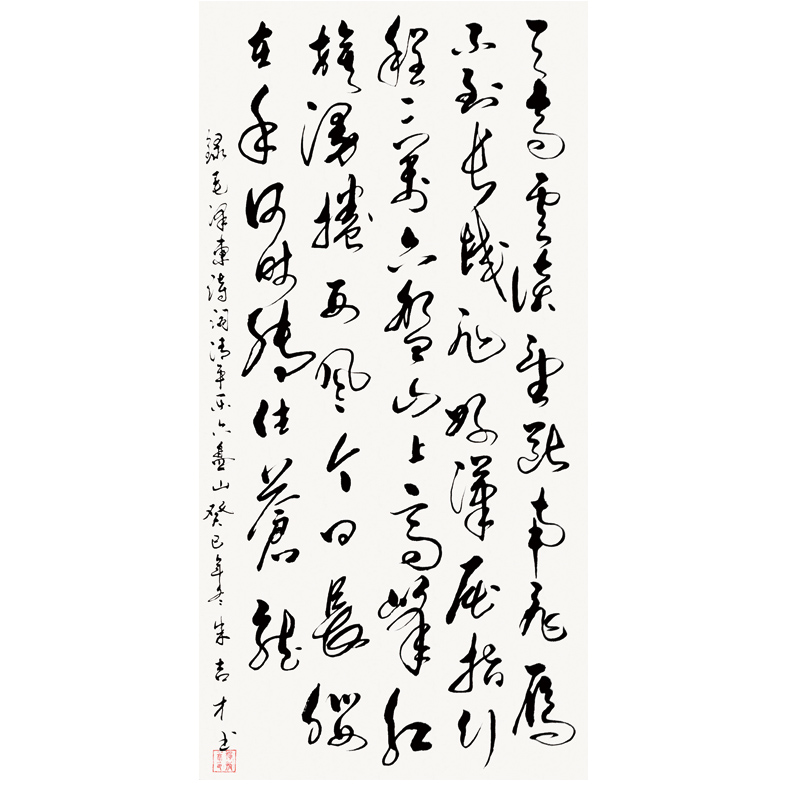 天高雲淡望斷南飛雁
不到長城非好漢屈指行
程二萬六盤山上高峯紅
旗漫捲西風今日長纓
在手何時縛住蒼龍
録毛澤東詩詞清平樂六盤山癸巳年冬朱吉才书